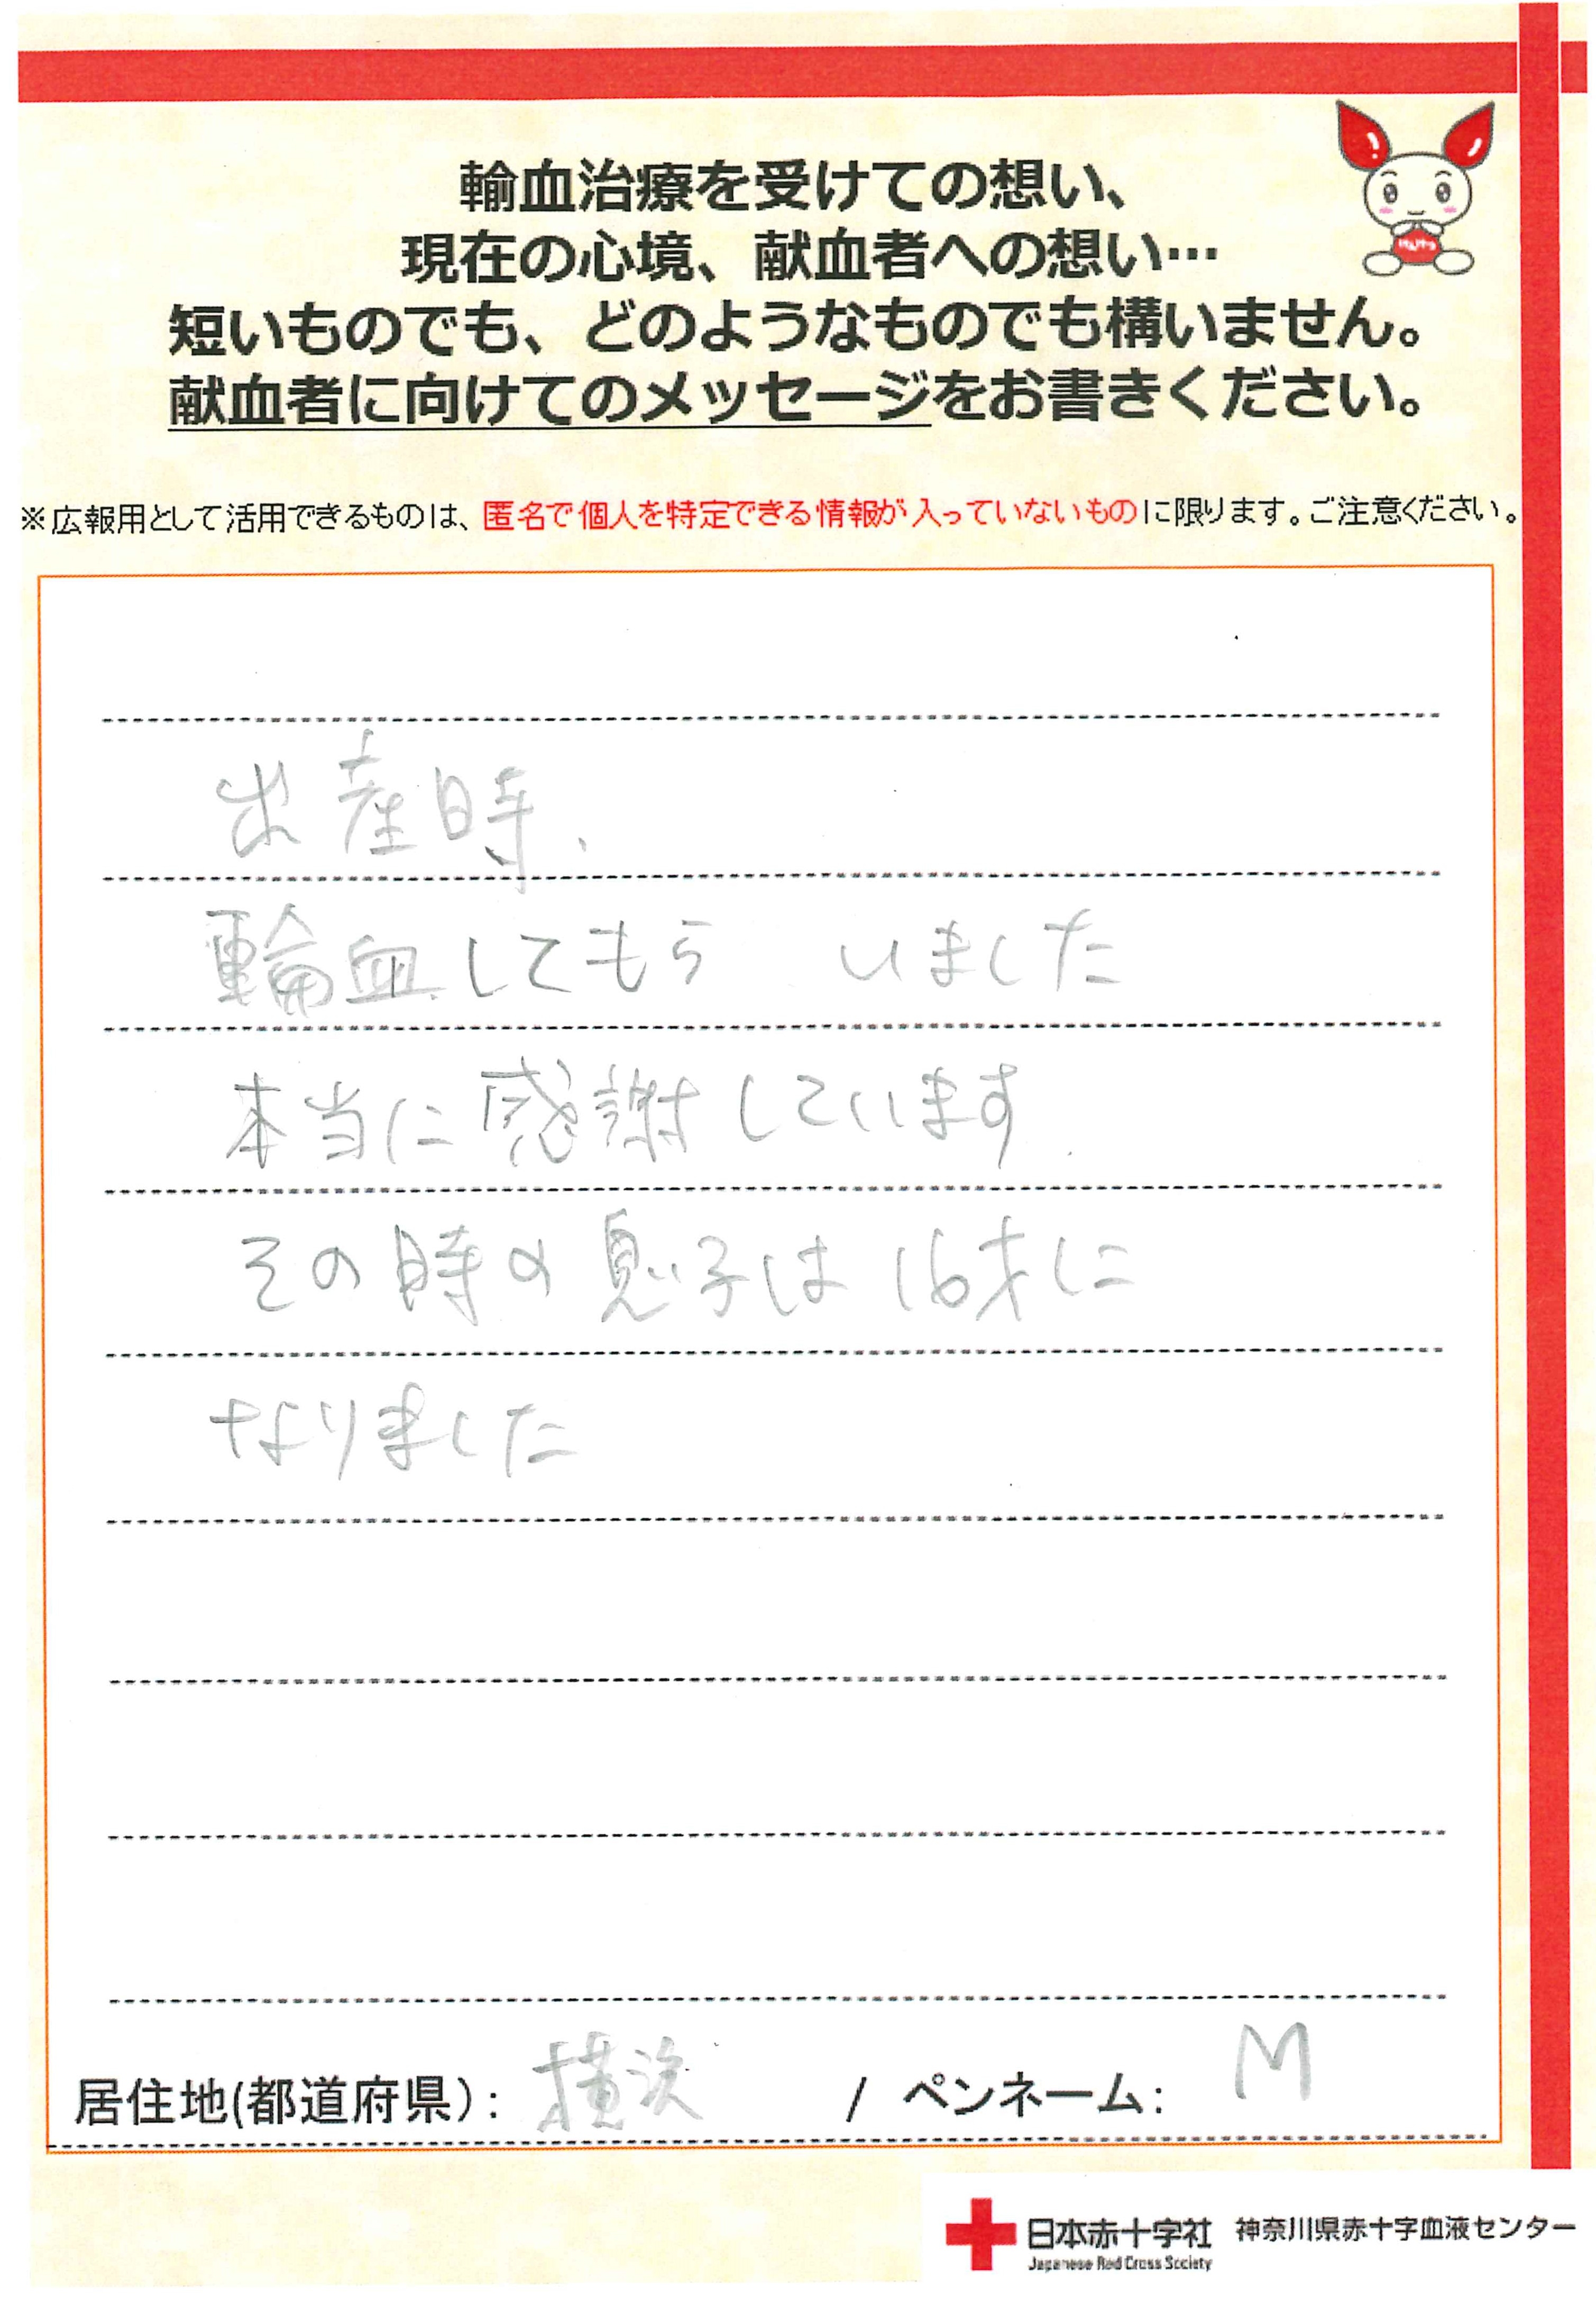 輸血治療を受けての想い、
現在の心境、献血者への想い…
短いものでも、どのようなものでも構いません。
献血者に向けてのメッセージをお書きください。
※広報用として活用できるものは、匿名で個人を特定できる情報が入っていないものに限ります。ご注意ください。
出産時、
輸血してもらいました
本当に感謝しています
その時の息子は16才に
なりました
居住地(都道府県): 横浜 / ペンネーム: M
日本赤十字社 神奈川県赤十字血液センター
Japanese Red Cross Society